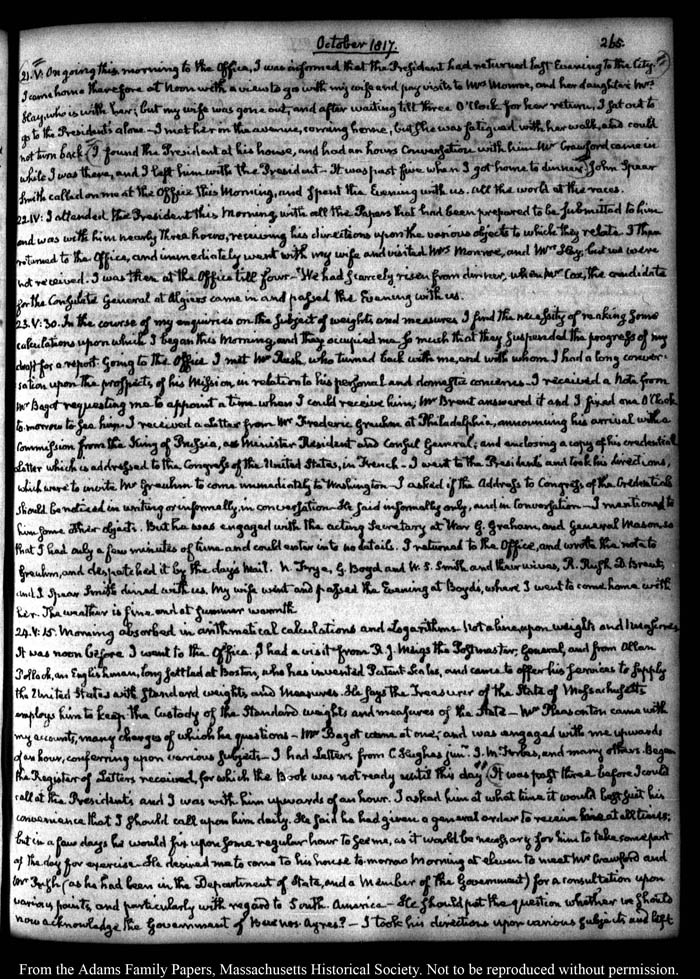 October 1817.
265.
21. V: On going this morning to the Office, I was informed that the President had returned last Evening to the City.
I came home therefore at Noon with a view to go with my wife and pay visits to Mrs Monroe, and her daughter Mrs
Hay, who is with her; but my wife was gone out, and after waiting till three O'Clock for her return, I set out to
go to the President's alone — I met her on the avenue, coming home, but she was fatigued with her walk, and could
not turn back (I found the President at his house, and had an hours Conversation with him Mr Crawford came in
while I was there, and I left him with the President — It was past five when I got home to dinner) John Spear
Smith called on me at the Office this Morning, and spent the Evening with us. All the world at the races.
22. IV: I attended the President this Morning, with all the Papers that had been prepared to be submitted to him
and was with him nearly three hours, receiving his directions upon the various objects to which they relate. I then
returned to the Office, and immediately went with my wife and visited Mrs Monroe, and Mrs Hay; but we were
not received. I was then at the Office till four — We had scarcely risen from dinner, when Mr Cox, the candidate
for the Consulate General at Algiers came in and passed the Evening with us.
23. V:30. In the course of my enquiries on the subject of weights and measures I find the necessity of making some
calculations upon which I began this Morning, and they occupied me so much that they suspended the progress of my
draft for a report. Going to the Office I met Mr Rush, who turned back with me, and with whom I had a long conver-
sation upon the prospects of his Mission, in relation to his personal and domestic concerns — I received a Note from
Mr Bagot requesting me to appoint a time when I could receive him; Mr Brent answered it and I fixed one O'Clock
to-morrow to see him — I received a letter from Mr Frederic Greuhm at Philadelphia, announcing his arrival with a
Commission from the King of Prussia, as Minister Resident and Consul General; and enclosing a copy of his credential
Letter which is addressed to the Congress of the United States, in French — I went to the President's and took his directions,
which were to invite Mr Greuhm to come immediately to Washington — I asked if the Address to Congress of the Credentials
should be noticed in writing or informally, in conversation — He said informally only, and in Conversation — I mentioned to
him some other objects. But he was engaged with the acting Secretary at War G. Graham, and General Mason, so
that I had only a few minutes of time and could enter into no details. I returned to the Office, and wrote the note to
Greuhm, and despatched it by the day's Mail. N. Frye, G. Boyd and W. S. Smith and their wives, R. Rush, D. Brent,
and J. Spear Smith dined with us. My wife went and passed the Evening at Boyd's, where I went to come home with
her. The weather is fine and at summer warmth
24. V:15. Morning absorbed in arithmetical calculations and Logarithms. Not a line upon weights and Measures
It was noon before I went to the Office. I had a visit from R. J. Meigs the Postmaster, General, and from Allan
Pollock, an Englishman, long settled at Boston, who has invented Patent Scales, and came to offer his services to supply
the United States with Standard weights and Measures. He says the Treasurer of the State of Massachusetts
employs him to keep the Custody of the Standard weights and measures of the State — Mr Pleasonton came with
my accounts, many charges of which he questions — Mr Bagot came at one; and was engaged with me upwards
of an hour, conferring upon various subjects — I had Letters from C. Hughes junr. J. M. Forbes, and many others. Began
the Register of Letters received, for which the Book was not ready until this day (It was past three before I could
call at the President's and I was with him upwards of an hour. I asked him at what time it would best suit his
convenience that I should call upon him daily. He said he had given a general order to receive me at all times;
but in a few days he would fix upon some regular hour to see me, as it would be necessary for him to take some part
of the day for exercise. He desired me to come to his house to-morrow Morning at eleven to meet Mr Crawford and
Mr Rush (as he had been in the Department of State, and a Member of the Government) for a consultation upon
various points, and particularly with regard to South America — He should put the question whether we should
now acknowledge the Government of Buenos Ayres? — I took his directions upon various subjects and left
From the Adams Family Papers, Massachusetts Historical Society. Not to be reproduced without permission.